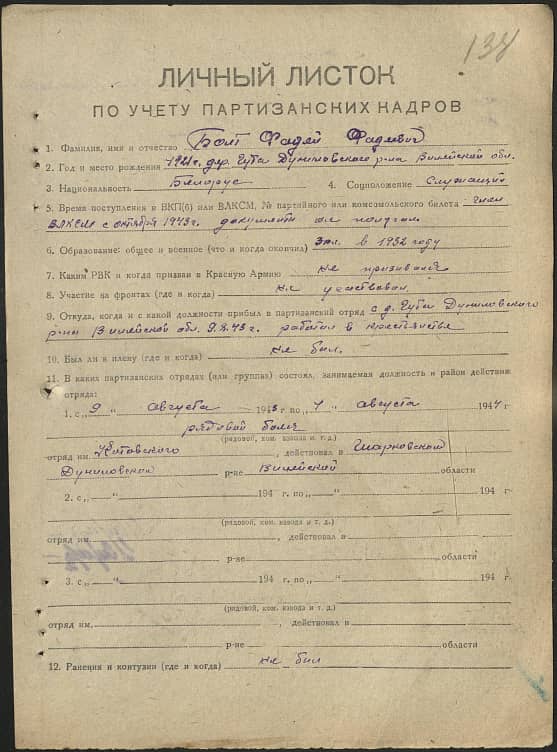 134
ЛИЧНЫЙ ЛИСТОК
ПО УЧЕТУ ПАРТИЗАНСКИХ КАДРОВ
1. Фамилия, имя и отчество Болт Фадей Фадеевич
2. Год и место рождения 1921 г. дер. Губа Дуниловского р-на Вилейской обл.
3. Национальность Белорус 4. Соцположение Служащий
5. Время поступления в ВКП(б) или ВЛКСМ, № партийного или комсомольского билета член
ВЛКСМ с октября 1943 г. документы не получал
6. Образование: общее и военное (что и когда окончил) в 1932 году
7. Каким РВК и когда призван в Красную Армию не призывался
8. Участие на фронтах (где и когда) не участвовал
9. Откуда, когда и с какой должности прибыл в партизанский отряд с д. Губа Дуниловского
р-на Вилейской обл. 9.8.43 г. работал в крестьянстве
10. Был ли в плену (где и когда) не был.
11. В каких партизанских отрядах (или группах) состоял, занимаемая должность и район действия
отряда:
1. с „9“ августа 1943 г. по „1“ августа 1944 г.
рядовой боец
(рядовой, ком. взвода и т. д.)
отряд им. Котовского, действовал в Шарковской
Дуниловской р-не Вилейской области
2. с „ “ 194 г. по „ “ 194 г.
(рядовой, ком. взвода и т. д.)
отряд им. , действовал в
р-не области
3. с „ “ 194 г. по „ “ 194 г.
(рядовой, ком. взвода и т. д.)
отряд им. , действовал в
р-не области
12. Ранения и контузии (где и когда) не был